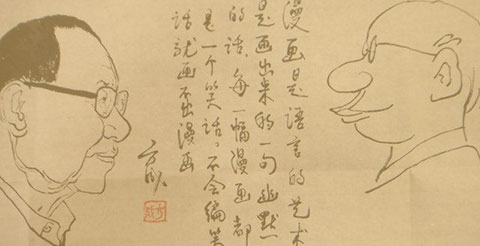 漫画是语言的艺术
是画出来的一句幽默
的话、每一幅漫画都
是一个笑话。不会编笑
话就画不出漫画
方成